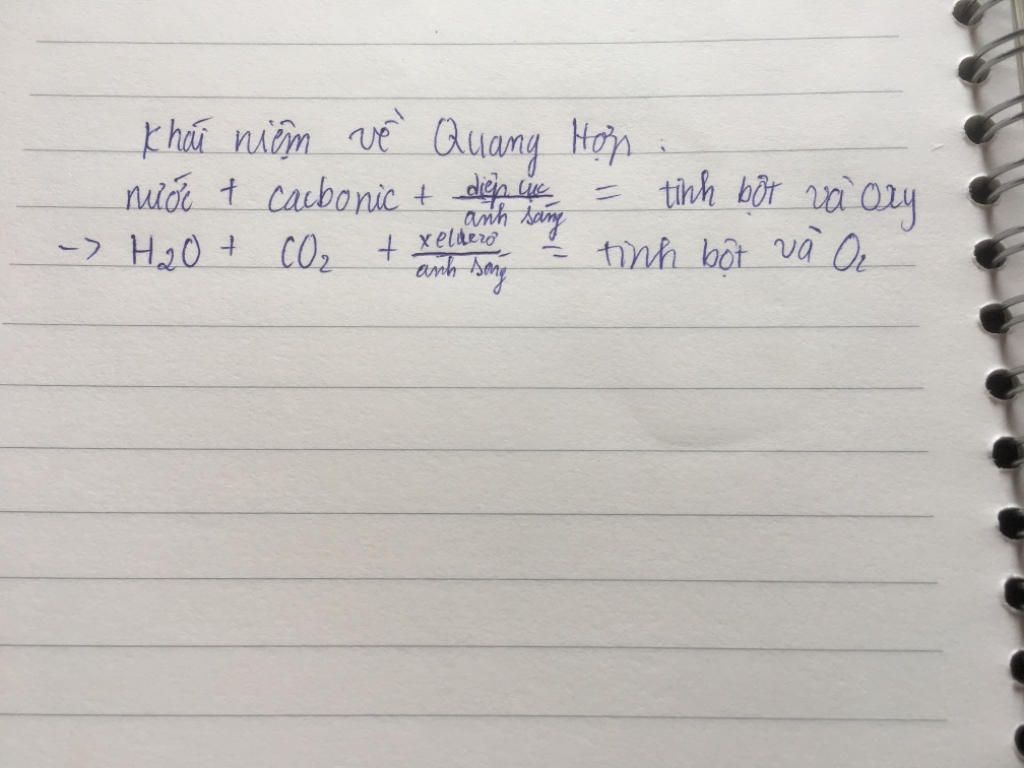 Khái niệm về Quang Hợp :
nước + cacbonic + diệp lục / ánh sáng = tinh bột và Oxy
-> H2O + CO2 + / ánh sáng = tinh bột và O2